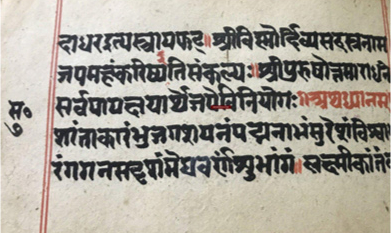 दाधरदत्यस्त्रायफट्॥श्रीविस्मोर्द्दिव्यसहस्त्रनाम
जपमहंकरिष्यतिसंकल्पः॥श्रीपुरुषोत्तमाराधने
सर्वपापक्षयार्थेजपेविनियोगः॥अथध्यानम्
शांताकारंभुजगशयनंपद्मनाभंसुरेशंविश्वा
रंगगनसदृशंमेघवर्णंशुभांगं॥लक्ष्मीकांतं
स॰
७